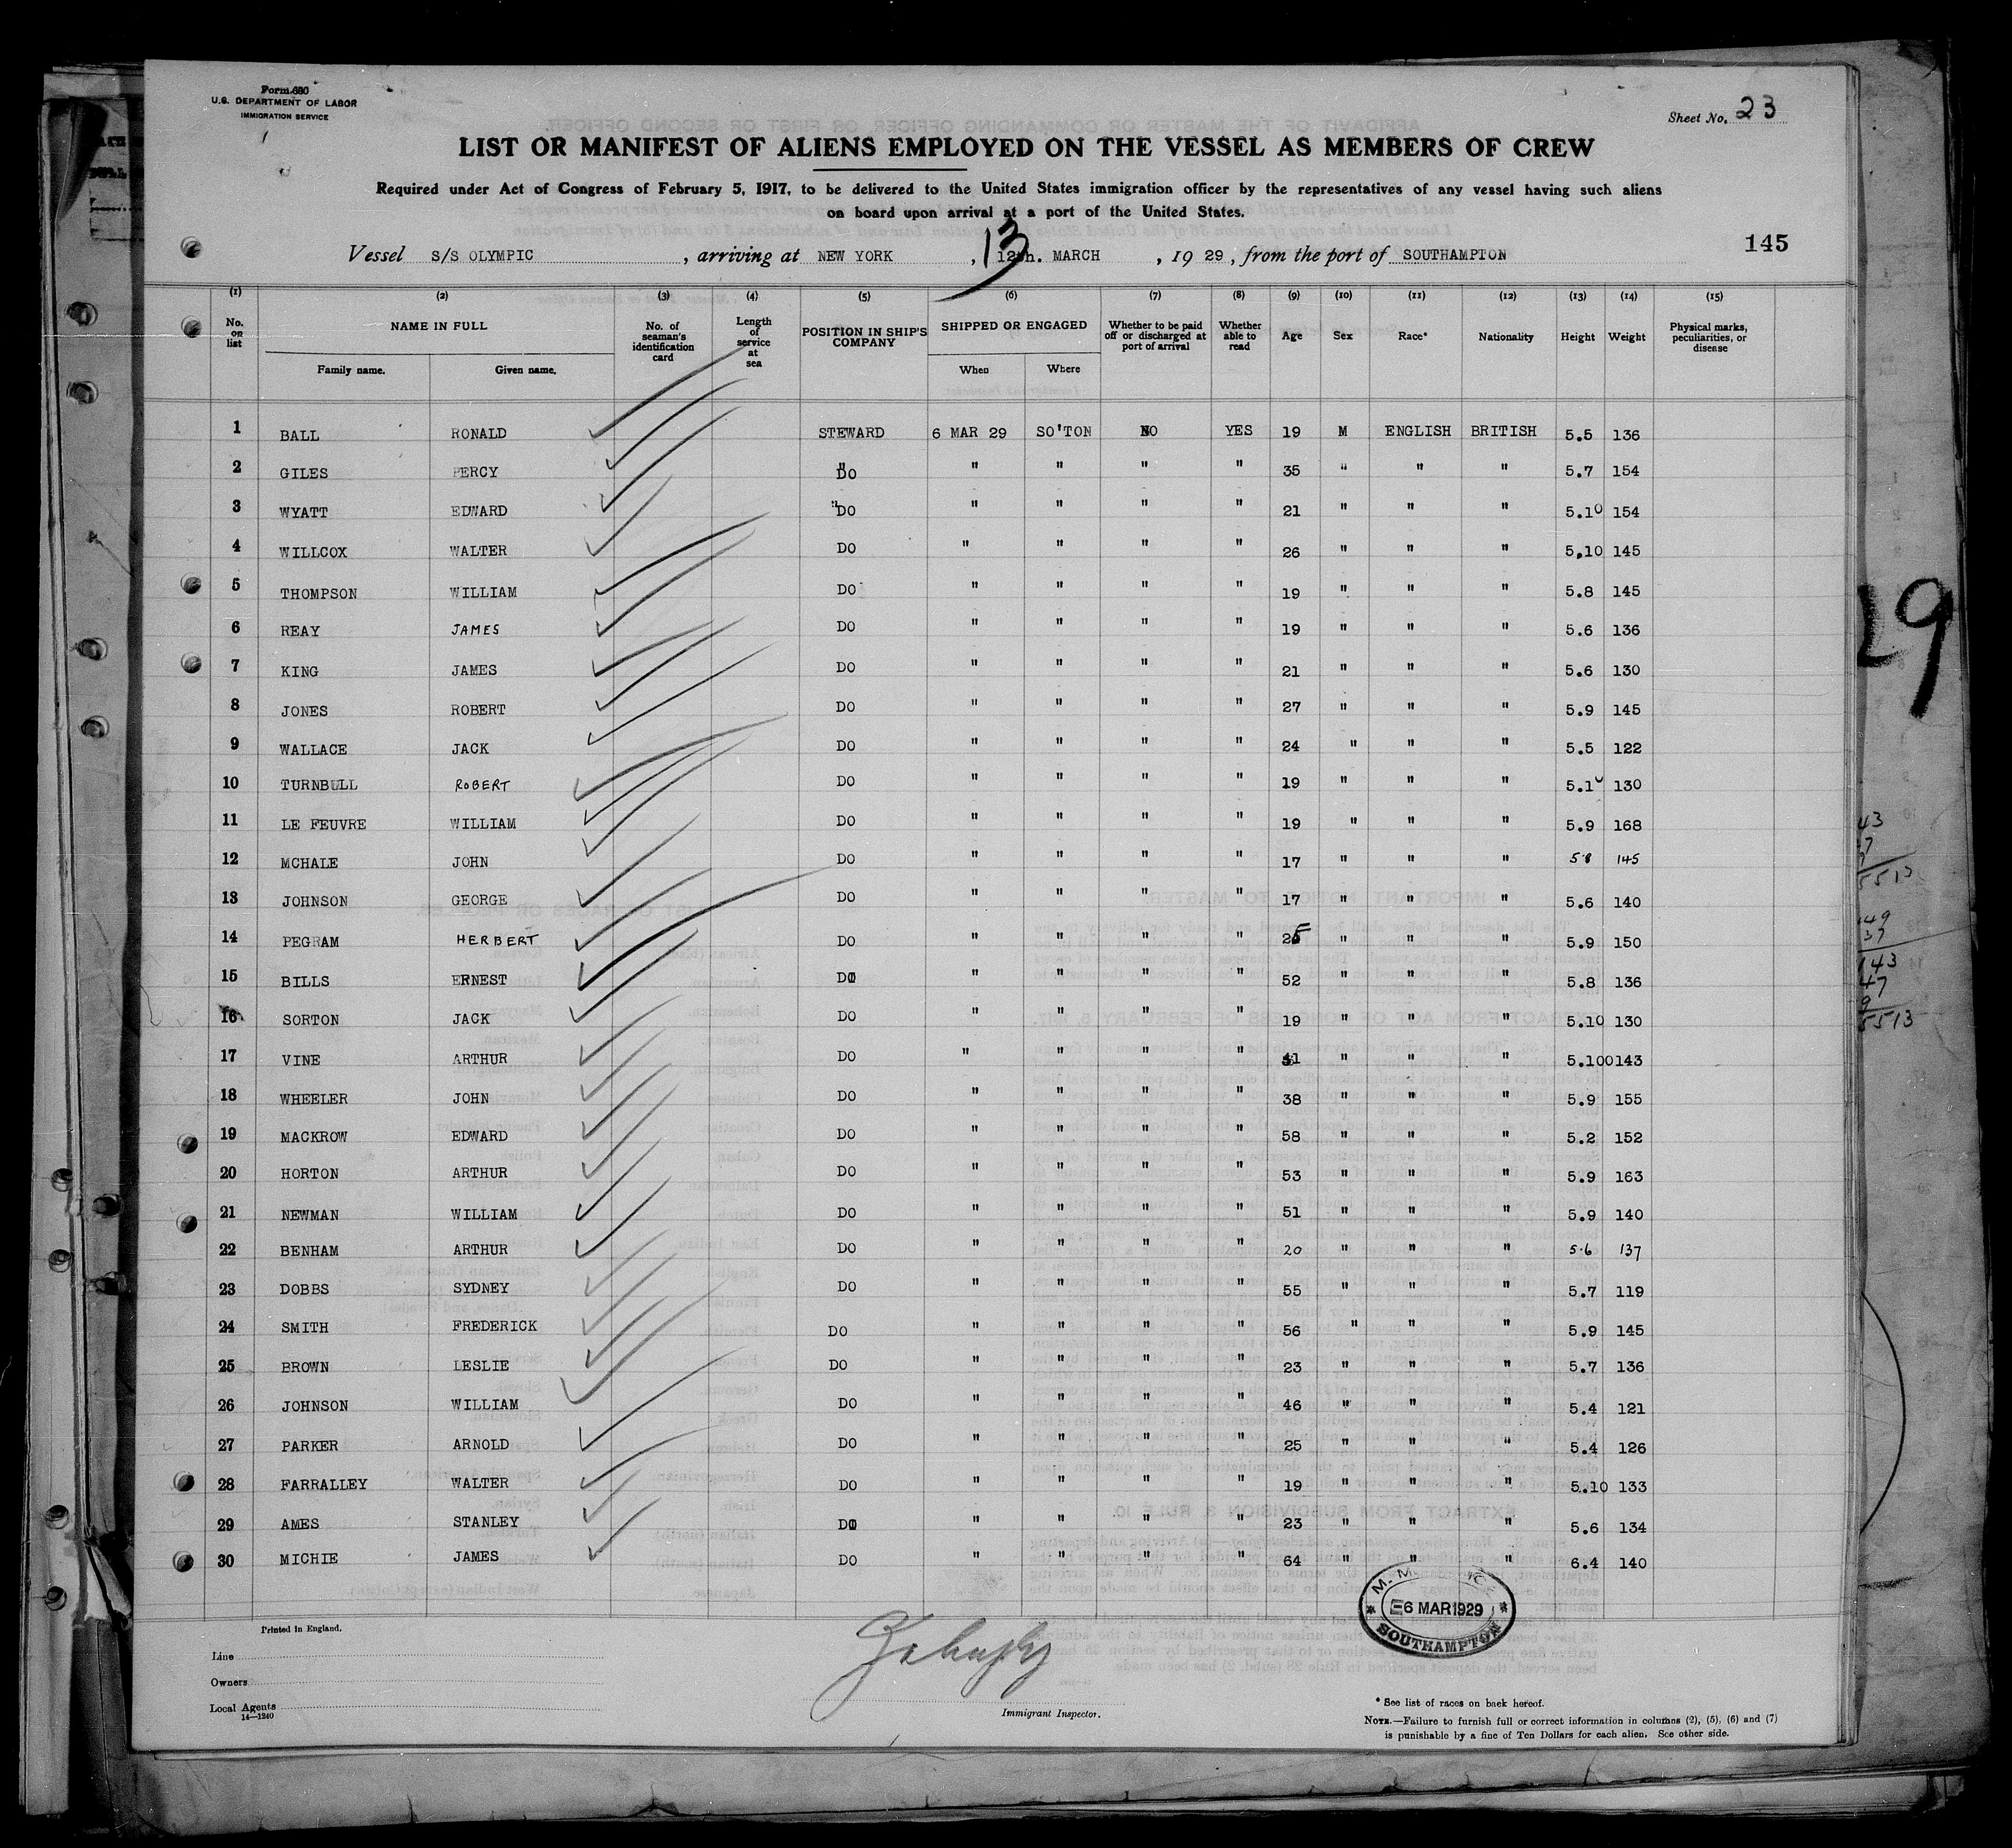 Form 680
U.S. DEPARTMENT OF LABOR
IMMIGRATION SERVICE
Sheet No. 23
LIST OR MANIFEST OF ALIENS EMPLOYED ON THE VESSEL AS MEMBERS OF CREW
Required under Act of Congress of February 5, 1917, to be delivered to the United States immigration officer by the representatives of any vessel having such aliens
on board upon arrival at a port of the United States.
Vessel S/S OLYMPIC, arriving at NEW YORK, 13 12th. MARCH, 1929, from the port of SOUTHAMPTON
145
(1) (2) (3) (4) (5) (6) (7) (8) (9) (10) (11) (12) (13) (14) (15)
No. on list NAME IN FULL No. of seaman's identification card Length of service at sea POSITION IN SHIP'S COMPANY SHIPPED OR ENGAGED Whether to be paid off or discharged at port of arrival Whether able to read Age Sex Race* Nationality Height Weight Physical marks, peculiarities, or disease
Family name. Given name. When Where
1 BALL RONALD STEWARD 6 MAR 29 SO'TON NO YES 19 M ENGLISH BRITISH 5.5 136
2 GILES PERCY DO " " " " 35 " " " 5.7 154
3 WYATT EDWARD "DO " " " " 21 " " " 5.10 154
4 WILLCOX WALTER DO " " " " 26 " " " 5.10 145
5 THOMPSON WILLIAM DO " " " " 19 " " " 5.8 145
6 REAY JAMES DO " " " " 19 " " " 5.6 136
7 KING JAMES DO " " " " 21 " " " 5.6 130
8 JONES ROBERT DO " " " " 27 " " " 5.9 145
9 WALLACE JACK DO " " " " 24 " " " 5.5 122
10 TURNBULL ROBERT DO " " " " 19 " " " 5.10 130
11 LE FEUVRE WILLIAM DO " " " " 19 " " " 5.9 168
12 MCHALE JOHN DO " " " " 17 " " " 5.8 145
13 JOHNSON GEORGE DO " " " " 17 " " " 5.6 140
14 PEGRAM HERBERT DO " " " " 25 " " " 5.9 150
15 BILLS ERNEST DO " " " " 52 " " " 5.8 136
16 SORTON JACK DO " " " " 19 " " " 5.10 130
17 VINE ARTHUR DO " " " " 41 " " " 5.100 143
18 WHEELER JOHN DO " " " " 38 " " " 5.9 155
19 MACKROW EDWARD DO " " " " 58 " " " 5.2 152
20 HORTON ARTHUR DO " " " " 53 " " " 5.9 163
21 NEWMAN WILLIAM DO " " " " 51 " " " 5.9 140
22 BENHAM ARTHUR DO " " " " 20 " " " 5.6 137
23 DOBBS SYDNEY DO " " " " 55 " " " 5.7 119
24 SMITH FREDERICK DO " " " " 56 " " " 5.9 145
25 BROWN LESLIE DO " " " " 23 " " " 5.7 136
26 JOHNSON WILLIAM DO " " " " 46 " " " 5.4 121
27 PARKER ARNOLD DO " " " " 25 " " " 5.4 126
28 FARRALLEY WALTER DO " " " " 19 " " " 5.10 133
29 AMES STANLEY DO " " " " 23 " " " 5.6 134
30 MICHIE JAMES DO " " " " 64 " " " 6.4 140
6 MAR 1929
SOUTHAMPTON
Printed in England.
Line
Owners
Local Agents
14—1240
Immigrant Inspector.
* See list of races on back hereof.
NOTE.—Failure to furnish full or correct information in columns (2), (5), (6) and (7)
is punishable by a fine of Ten Dollars for each alien. See other side.
29
43
5513
49
37
143
47
9
5513